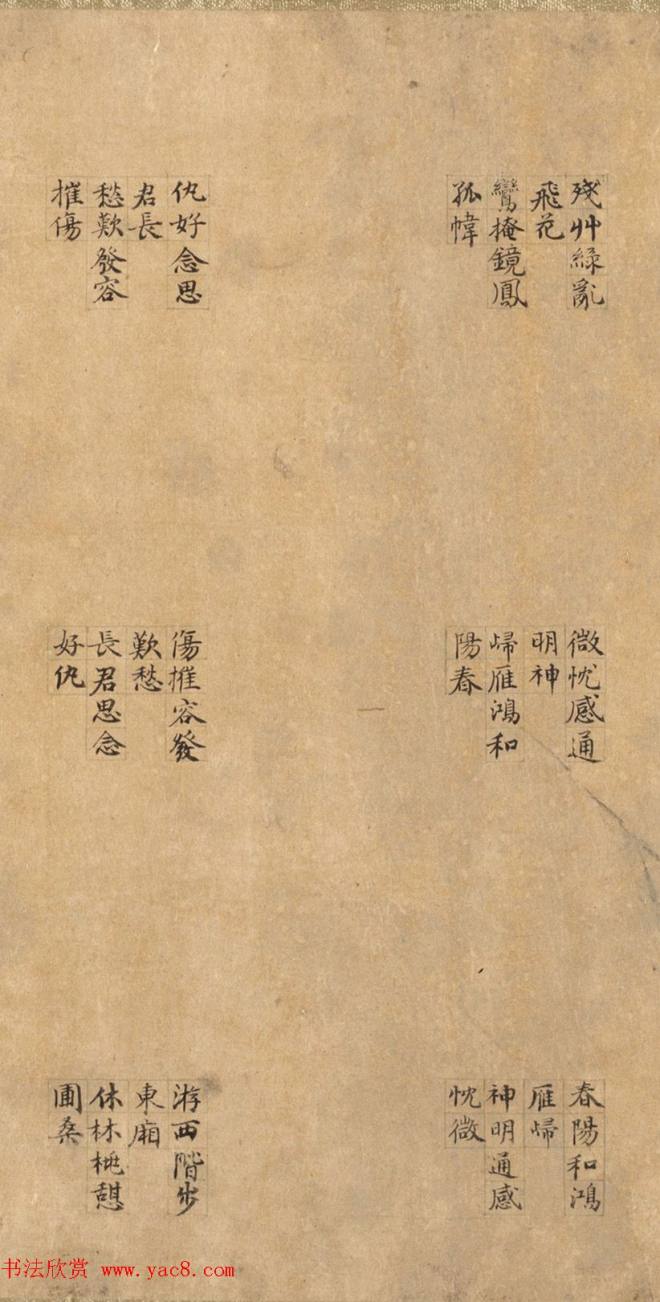 殘艸綠亂
飛花
鸞掩鏡鳳
孤幃
微忱感通
明神
歸雁鴻和
陽春
春陽和鴻
雁歸
神明通感
忱微
仇好念思
君長
愁歎發容
摧傷
傷摧容發
歎愁
長君思念
好仇
游西階步
東廂
休林桃憩
圃桑
书法欣赏 www.yac8.com